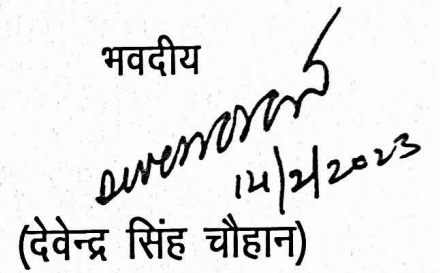 भवदीय
14/2/2023
(देवेन्द्र सिंह चौहान)